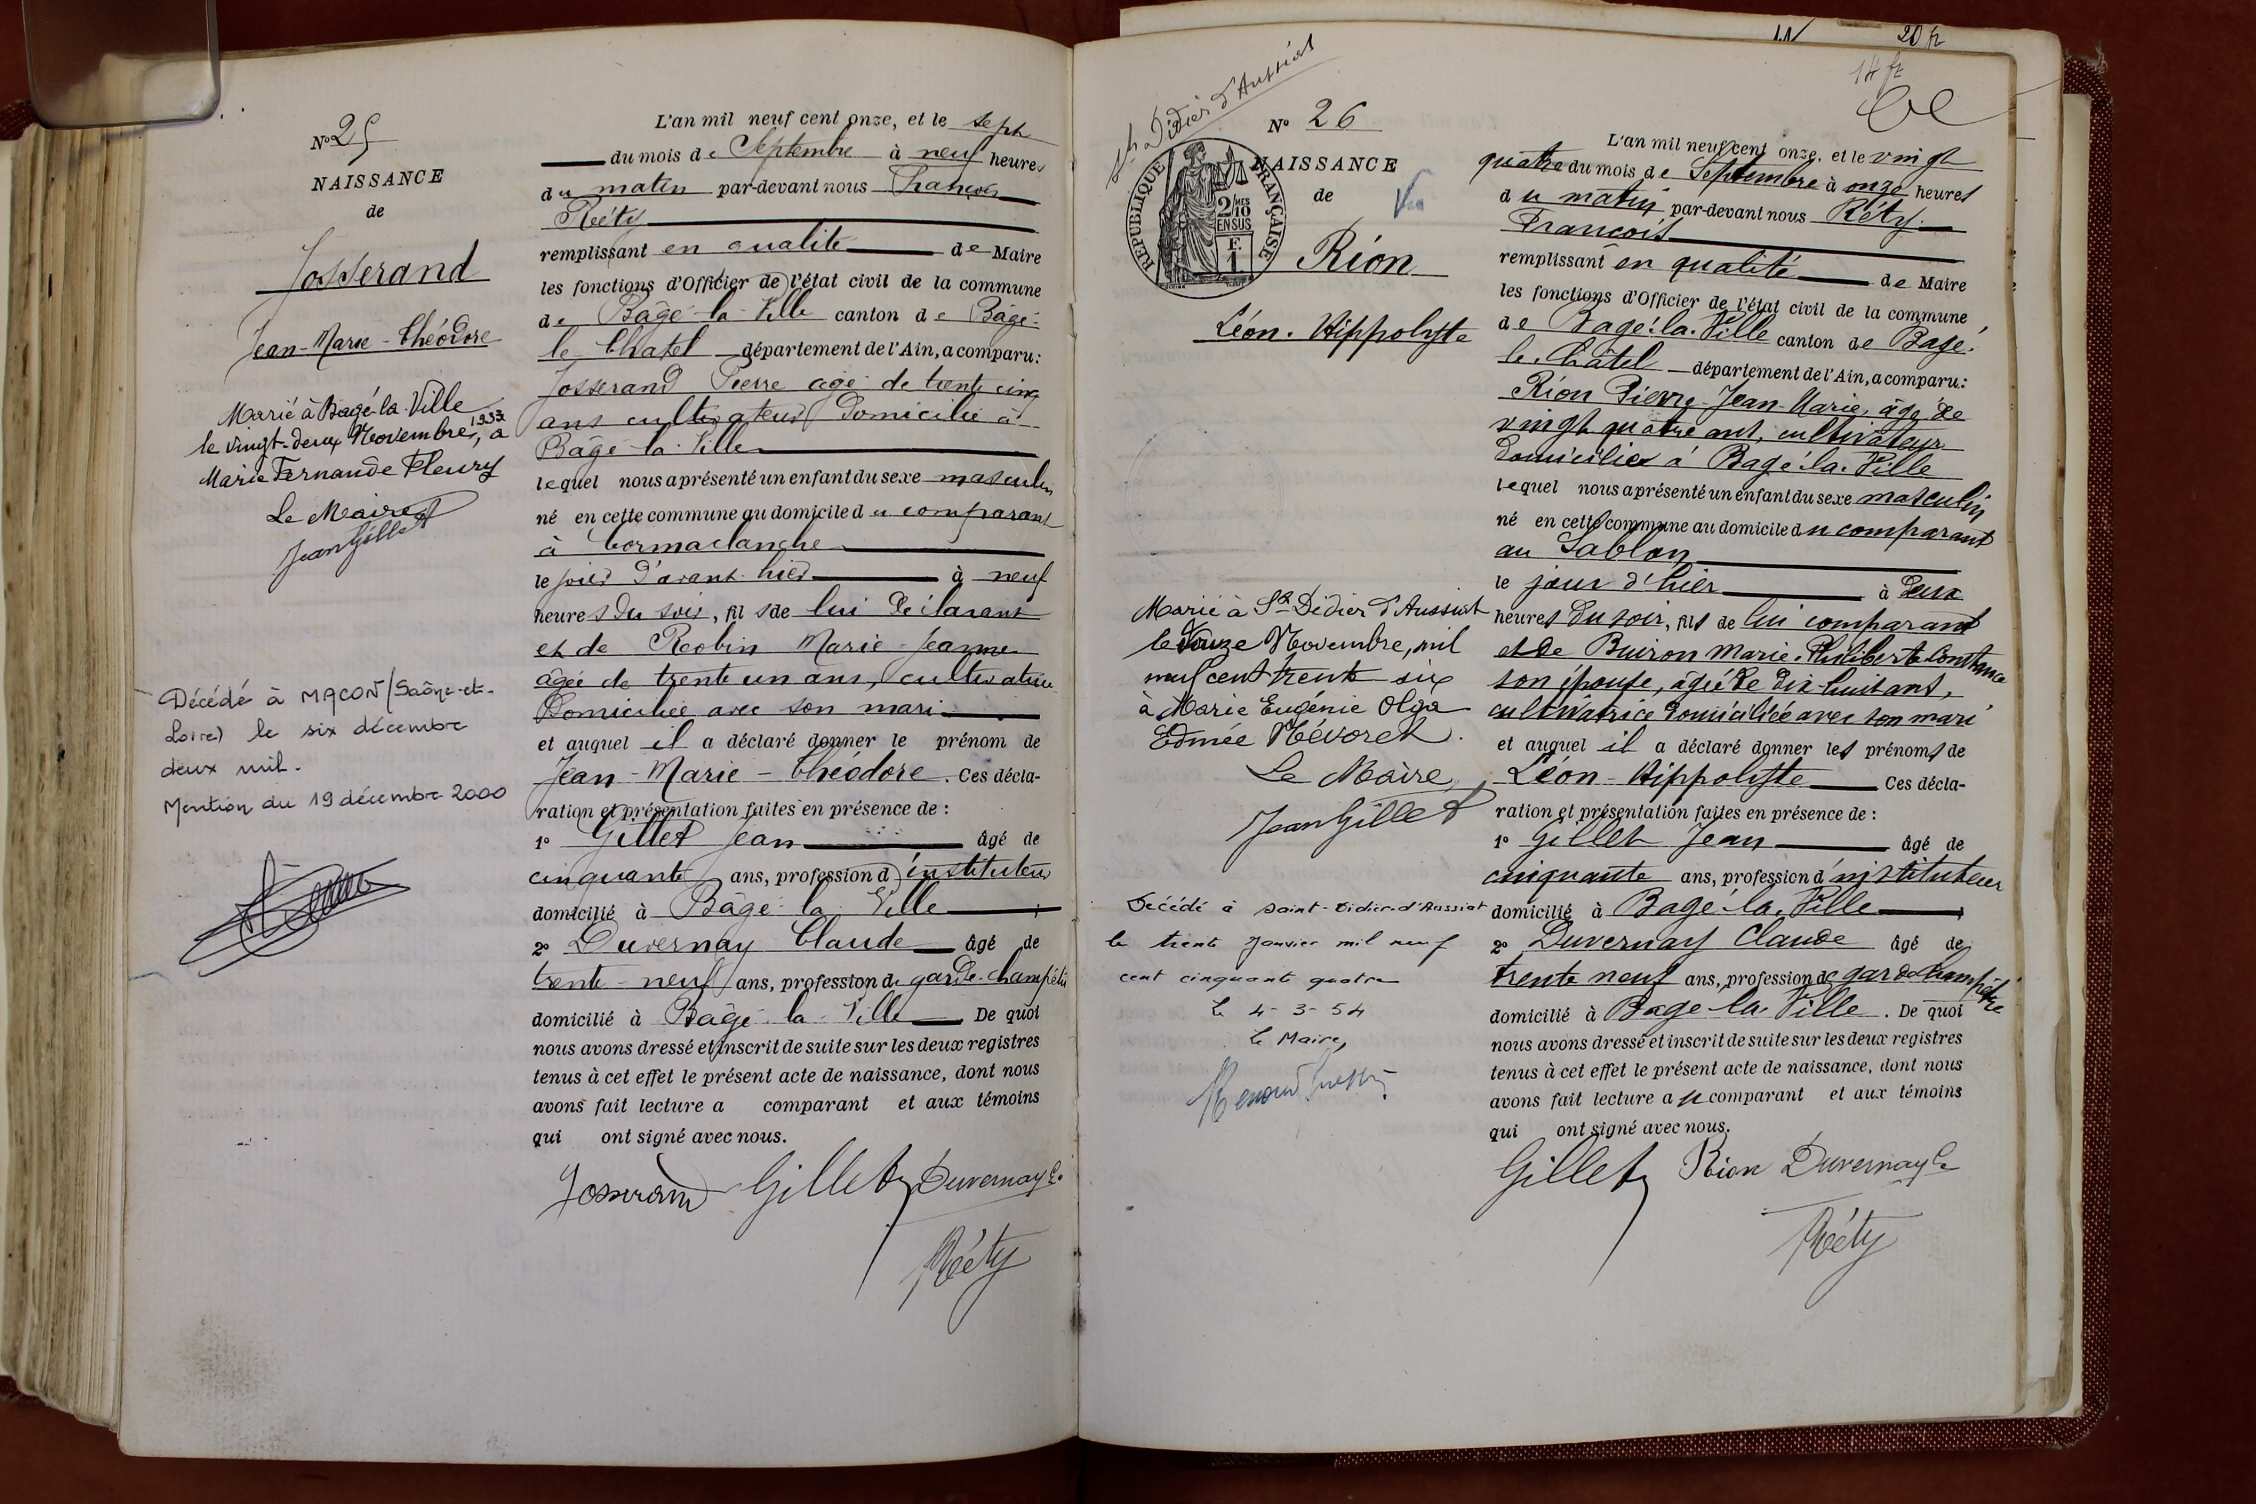 N° 25
NAISSANCE
de
Josserand
Jean-Marie-Théodore
Marié à Bagé-la-Ville
le vingt-deux Novembre 1933, à
Marie Fernande Fleury
Le Maire
Jean Gillet
Décédé à MACON (Saône-et-
Loire) le six décembre
deux mil.
Mention du 19 décembre 2000
L'an mil neuf cent onze, et le sept
du mois de Septembre à neuf heures
du matin par-devant nous François
Réty
remplissant en qualité de Maire
les fonctions d'Officier de l'état civil de la commune
de Bâgé-la-Ville canton de Bâgé-
le Chatel département de l'Ain, a comparu:
Josserand Pierre agé de trente cinq
ans cultivateur domicilié à
Bâgé-la-Ville
lequel nous a présenté un enfant du sexe masculin
né en cette commune au domicile du comparant
à Cormaclanche
le jour d'avant-hier à neuf
heures du soir, fils de lui déclarant
et de Robin Marie-Jeanne
âgée de trente un ans, cultivatrice
Domiciliée avec son mari
et auquel il a déclaré donner le prénom de
Jean-Marie-Théodore. Ces décla-
ration et présentation faites en présence de:
1° Gillet Jean âgé de
cinquante ans, profession d'instituteur
domicilié à Bâgé-la-Ville;
2° Duvernay Claude âgé de
trente-neuf ans, profession de garde-champêtre
domicilié à Bâgé-la-Ville De quoi
nous avons dressé et inscrit de suite sur les deux registres
tenus à cet effet le présent acte de naissance, dont nous
avons fait lecture a comparant et aux témoins
qui ont signé avec nous.
Josserand Gillet Duvernay C.
Réty
20 fr
14 fr
St Didier d'Aussiat
N° 26
RÉPUBLIQUE FRANÇAISE
2/10 MES
EN SUS
F.
1
NAISSANCE
de
Vu
Rion
Léon-Hippolyte
Marié à St Didier d'Aussiat
le douze Novembre, mil
neuf cent trente six
à Marie Eugénie Olga
Edmée Névoret.
Le Maire,
Jean Gillet
Décédé à Saint-Didier-d'Aussiat
le trente Janvier mil neuf
cent cinquante quatre
Le 4-3-54
Le Maire,
L'an mil neuf cent onze, et le vingt
quatre du mois de Septembre à onze heures
du matin par-devant nous Réty
François
remplissant en qualité de Maire
les fonctions d'Officier de l'état civil de la commune
de Bagé-la-Ville canton de Bagé-
le-Châtel département de l'Ain, a comparu:
Rion Pierre-Jean-Marie, âgé de
vingt quatre ans, cultivateur
domicilié à Bagé-la-Ville
lequel nous a présenté un enfant du sexe masculin
né en cette commune au domicile du comparant
au Sablon
le jour d'hier à deux
heures du soir, fils de lui comparant
et de Buiron Marie-Philiberte Constance
son épouse, âgée de dix-huit ans,
cultivatrice domiciliée avec son mari
et auquel il a déclaré donner les prénoms de
Léon-Hippolyte Ces décla-
ration et présentation faites en présence de:
1° Gillet Jean âgé de
cinquante ans, profession d'instituteur
domicilié à Bagé-la-Ville;
2° Duvernay Claude âgé de
trente neuf ans, profession de garde champêtre
domicilié à Bagé-la-Ville. De quoi
nous avons dressé et inscrit de suite sur les deux registres
tenus à cet effet le présent acte de naissance, dont nous
avons fait lecture au comparant et aux témoins
qui ont signé avec nous.
Gillet Rion Duvernay C.
Réty